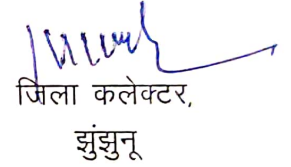 जिला कलेक्टर,
झुंझुनू